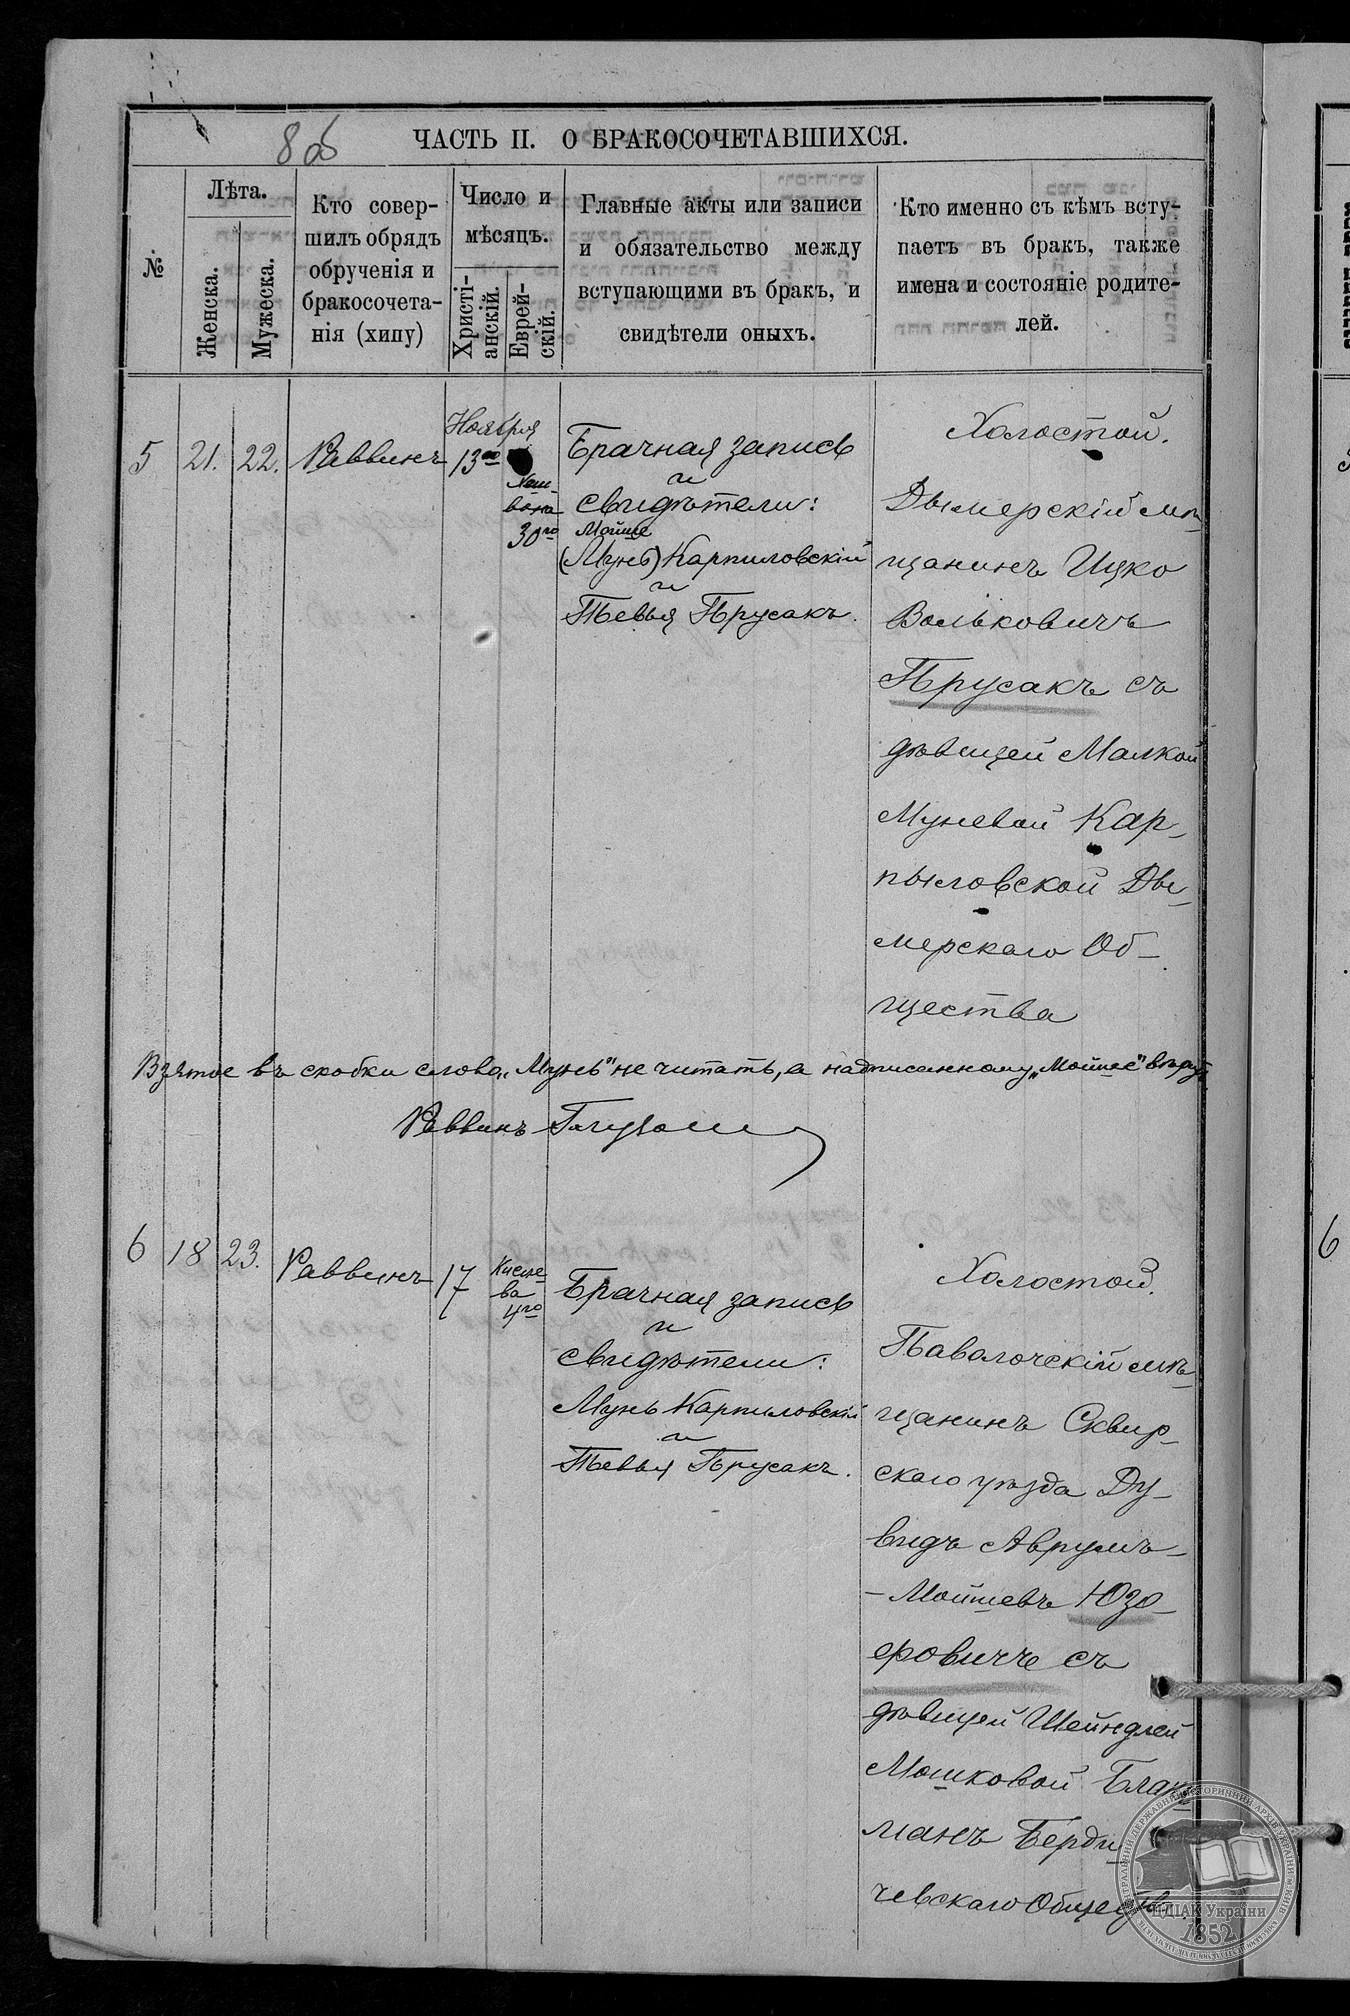 8об
ЧАСТЬ II. О БРАКОСОЧЕТАВШИХСЯ.
№
Лѣта.
Женска.
Мужеска.
Кто совер-
шилъ обрядъ
обрученія и
бракосочета-
нія (хипу)
Число и
мѣсяцъ.
Христі-
анскій.
Еврей-
скій.
Главные акты или записи
и обязательство между
вступающими въ бракъ, и
свидѣтели оныхъ.
Кто именно съ кѣмъ всту-
паетъ въ бракъ, также
имена и состояніе родите-
лей.
5
21.
22.
Раввинъ
Ноября
13го
Хеш-
вана
30го
Брачная запись
и
свидѣтели:
Мойше
(Мунь) Карпиловскій
и
Тевья Прусакъ.
Холостой.
Дымерскій мѣ-
щанинъ Ицко
Вольковичъ
Прусакъ съ
дѣвицей Малкой
Муневой Кар-
пыловской Ды-
мерскаго Об-
щества
Взятое въ скобки слово „Мунь" не читать, а надписанному „Мойше" вѣрить
Раввинъ
6
18
23.
Раввинъ
17
Кисле-
ва
4го
Брачная запись
и
свидѣтели:
Мунь Карпиловскій
и
Тевья Прусакъ.
Холостой.
Паволочскій мѣ-
щанинъ Сквир-
скаго уѣзда Ду-
видъ Аврумъ-
-Мойшевъ Юзе-
фовичъ съ
дѣвицей Шейндлей
Мошковой Блак-
манъ Берди
чевскаго Общества
ЦДІАК України
1852
6